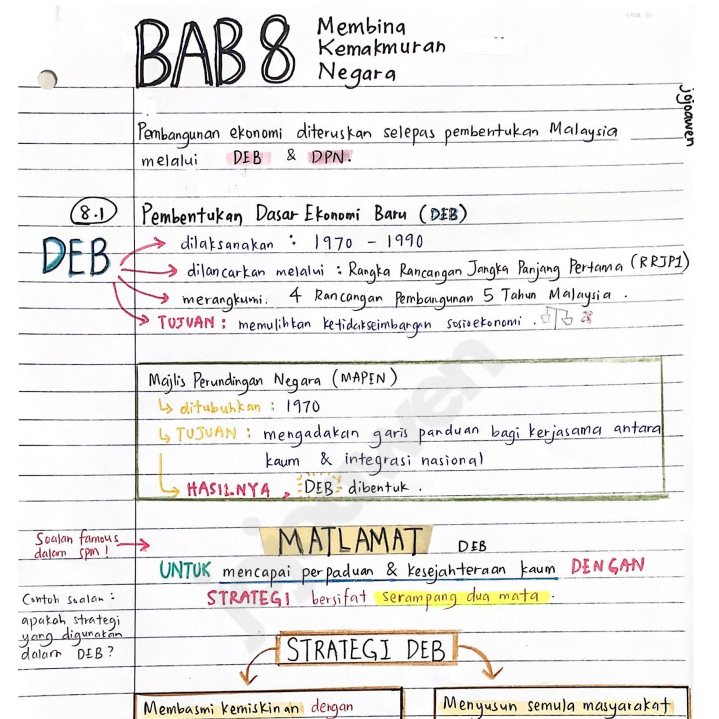 BAB 8 Membina
Kemakmuran
Negara
jojoawen
Pembangunan ekonomi diteruskan selepas pembentukan Malaysia
melalui DEB & DPN.
8.1 Pembentukan Dasar Ekonomi Baru (DEB)
DEB
dilaksanakan : 1970 - 1990
dilancarkan melalui : Rangka Rancangan Jangka Panjang Pertama (RRJP1)
merangkumi. 4 Rancangan Pembangunan 5 Tahun Malaysia .
TUJUAN : memulihkan ketidakseimbangan sosioekonomi .
Majlis Perundingan Negara (MAPEN)
ditubuhkan : 1970
TUJUAN : mengadakan garis panduan bagi kerjasama antara
kaum & integrasi nasional
HASILNYA , DEB dibentuk .
Soalan famous
dalam spm !
MATLAMAT DEB
UNTUK mencapai perpaduan & kesejahteraan kaum DENGAN
STRATEGI bersifat serampang dua mata .
Contoh soalan :
apakah strategi
yang digunakan
dalam DEB ?
STRATEGI DEB
Membasmi kemiskinan dengan
Menyusun semula masyarakat
jojoawen